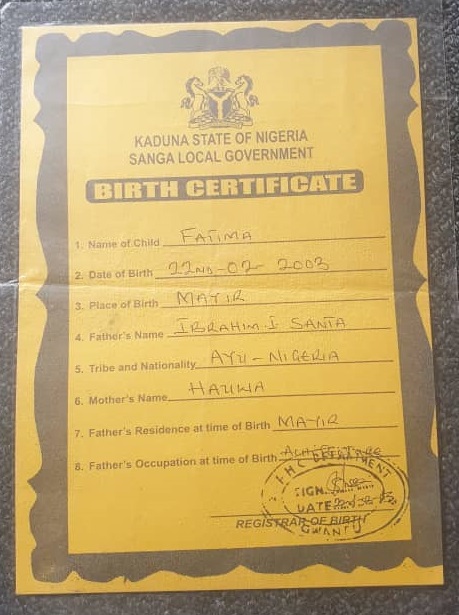 KADUNA STATE OF NIGERIA
SANGA LOCAL GOVERNMENT
BIRTH CERTIFICATE
1. Name of Child FATIMA
2. Date of Birth 22ND-02-2003
3. Place of Birth MAYIR
4. Father's Name IBRAHIM I SANTA
5. Tribe and Nationality AYU-NIGERIA
6. Mother's Name HAUWA
7. Father's Residence at time of Birth MAYIR
8. Father's Occupation at time of Birth
DEPARTMENT
SIGN
DATE
REGISTRAR OF BIRTH
GWANTU